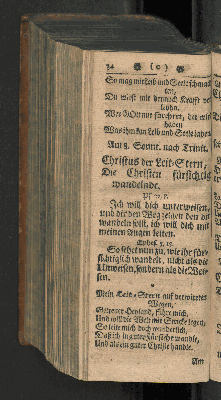 34 (o)
So mag mir Leib und Seel verschmach-
ten,
Du wirst mir dennoch Kraft ver-
Wer GOtt nur fürchtet, der wird
haben
Was ihm kan Leib und Seele laben.
Am 8. Sonnt. nach Trinit.
Christus der Leit-Stern,
Die Christen fürsichtig
wandelnde.
Ich will dich unterweisen,
und dir den Weg zeigen den du
wandeln solt, ich will dich mit
meinen Augen leiten.
Ephes. 5. 15.
So sehet nun zu, wie ihr für-
sichtiglich wandelt, nicht als die
Unweisen, sondern als die Wei-
sen.
Mein Leit-Stern auf verwirrten
Wegen,
Getreuer Heyland, führe mich,
Und will die Welt mir Stricke legen,
So leite mich doch wunderlich,
Daß ich in guter Fürsicht wandle,
Und als ein guter Christe handle.
Am